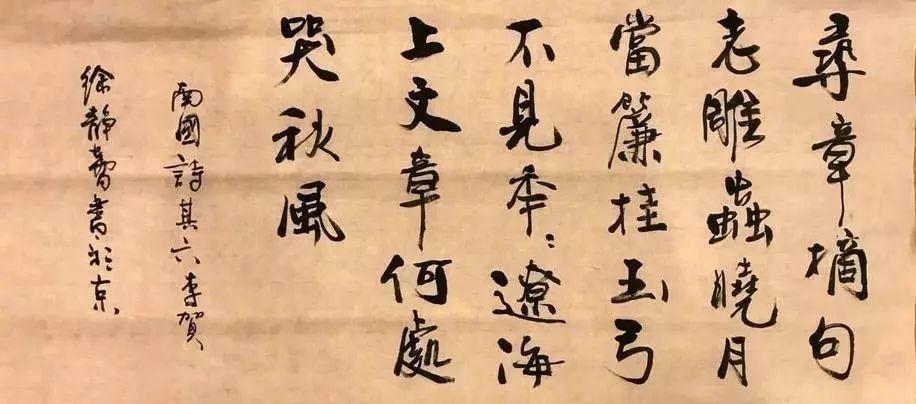 尋章摘句
老雕蟲曉月
當簾挂玉弓
不見年〻遼海
上文章何處
哭秋風
南國詩其六李賀
徐靜蕾書於京